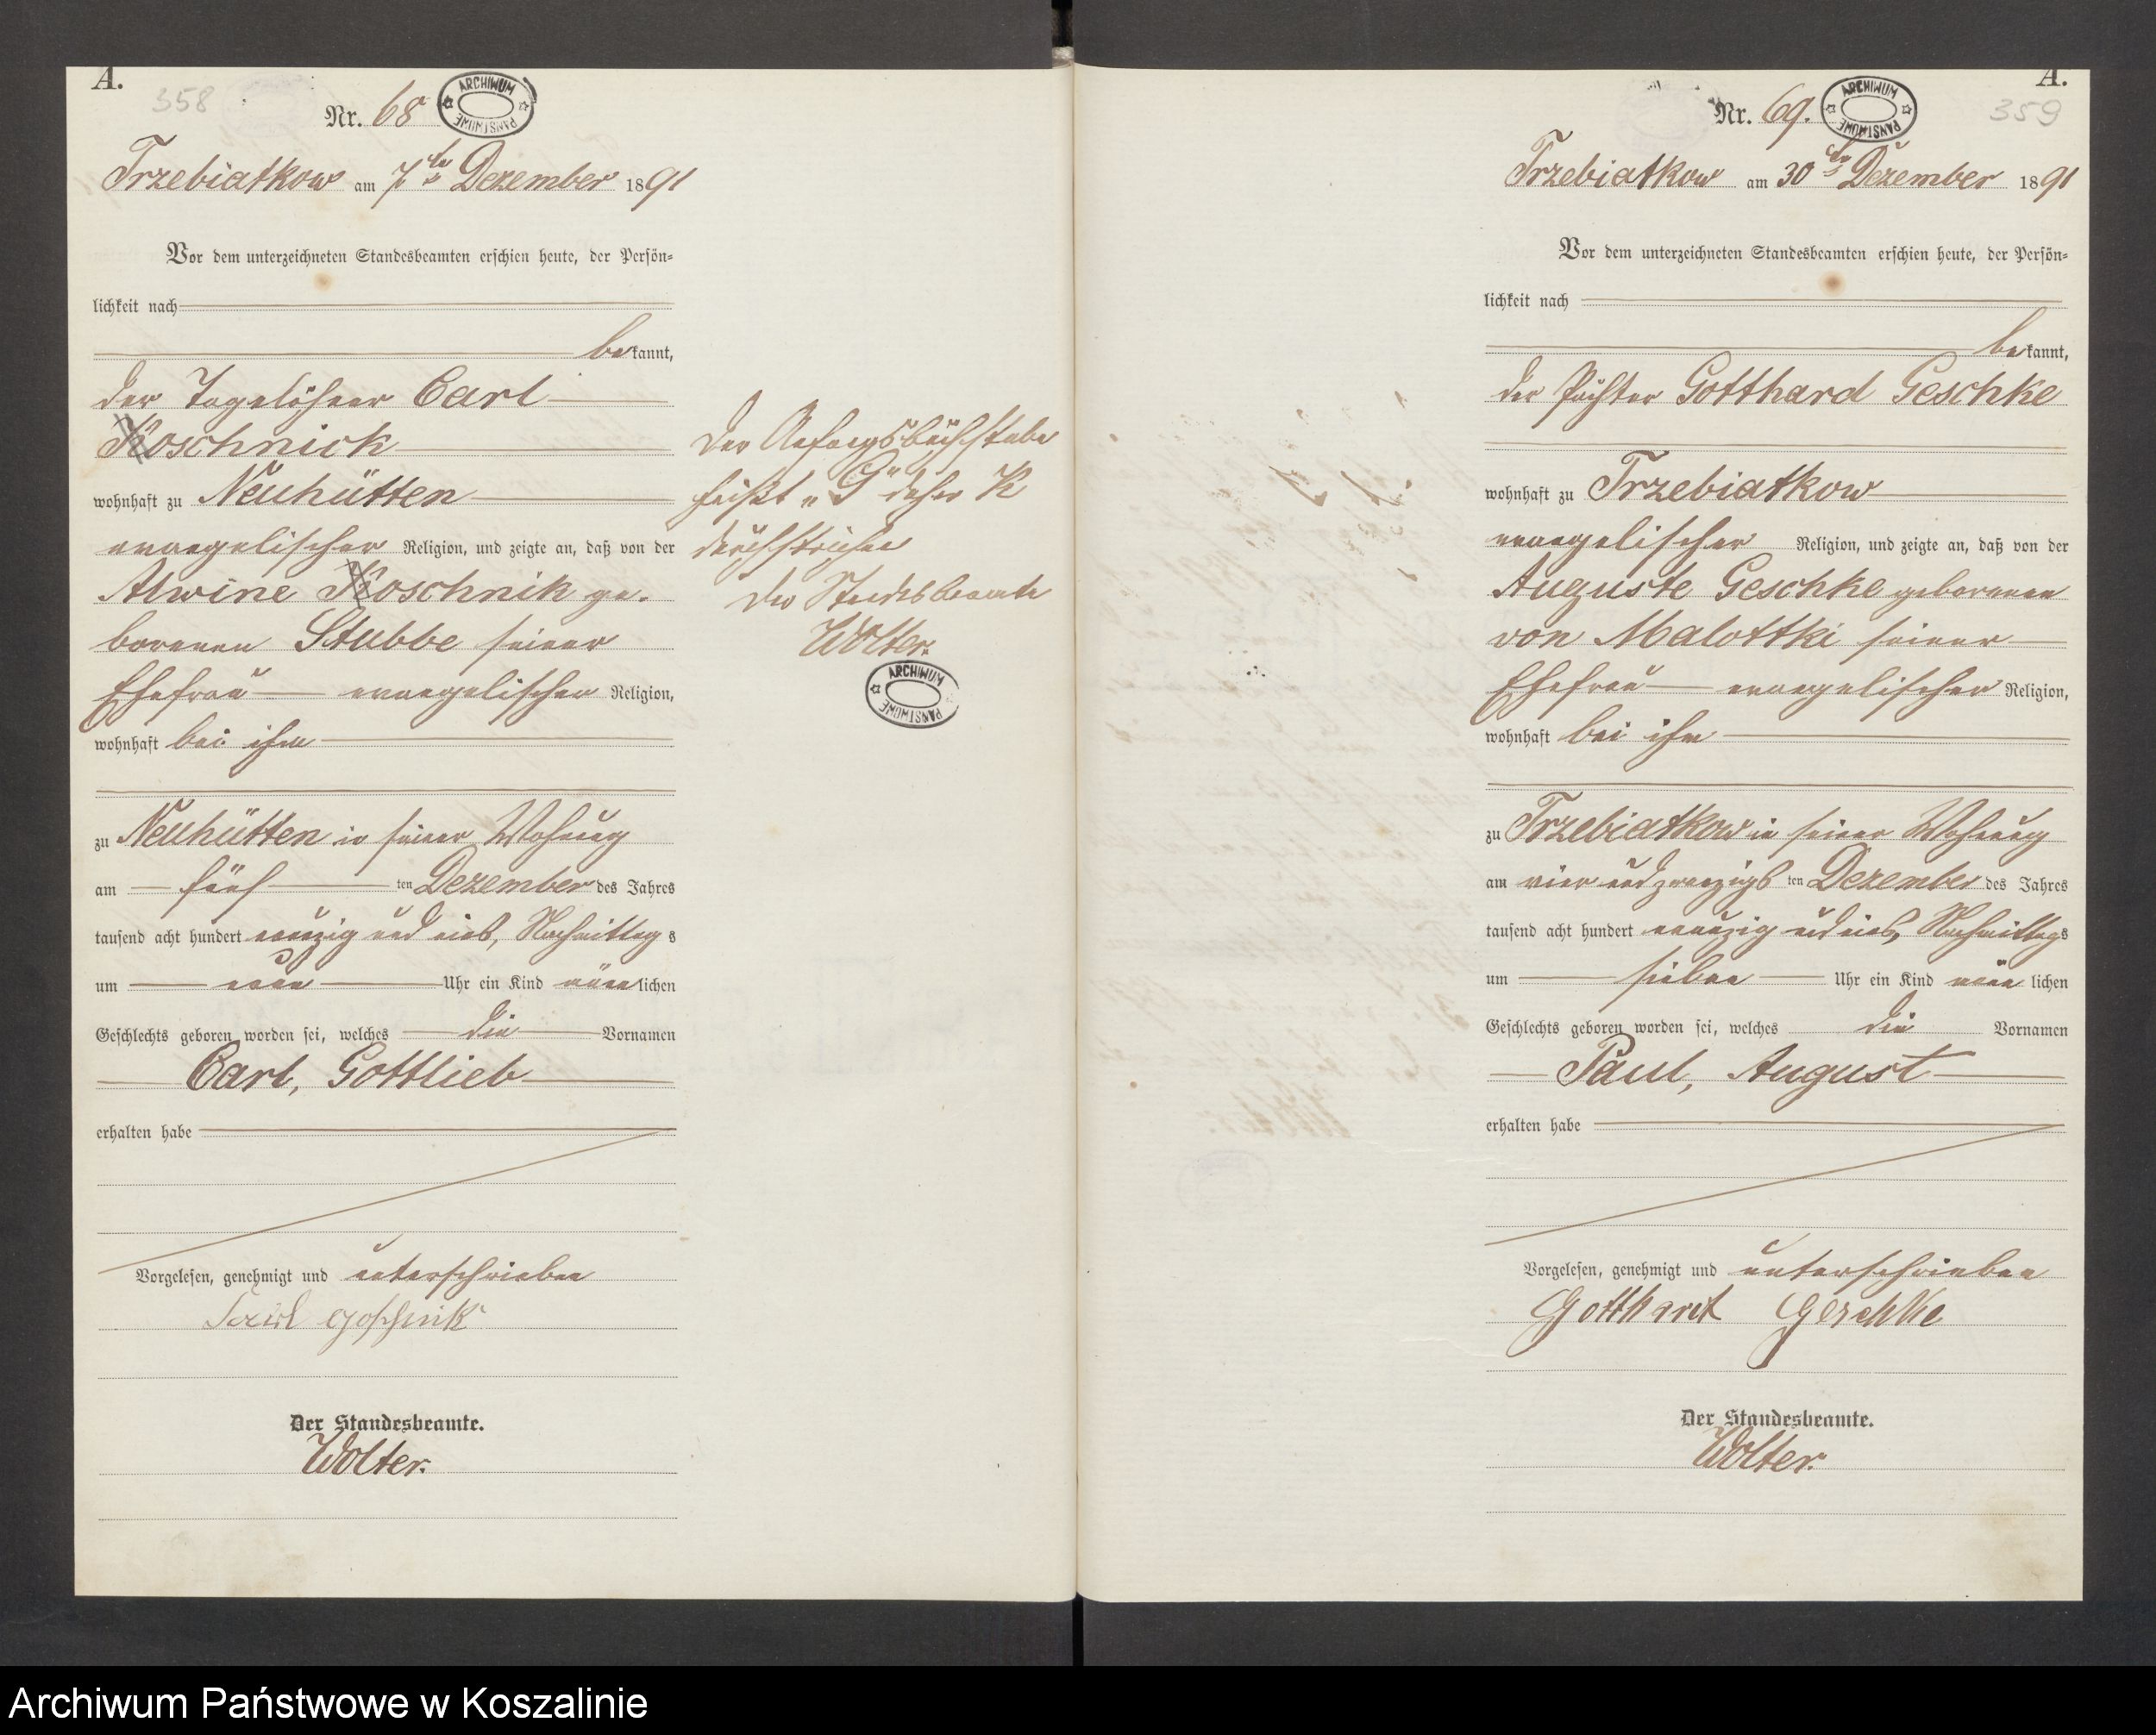 A.
358
Nr. 68
ARCHIWUM PAŃSTWOWE
Trzebiatkow am 7ten Dezember 1891
Vor dem unterzeichneten Standesbeamten erschien heute, der Persön-
lichkeit nach
bekannt,
der Tagelöhner Carl
Koschnick
wohnhaft zu Neuhütten
evangelischer Religion, und zeigte an, daß von der
Alwine Koschnik ge-
borenen Stubbe seiner
Ehefrau evangelischer Religion,
wohnhaft bei ihm
zu Neuhütten in seiner Wohnung
am fünf ten Dezember des Jahres
tausend acht hundert neunzig und eins, Nachmittags
um neun Uhr ein Kind männlichen
Geschlechts geboren worden sei, welches die Vornamen
Carl, Gottlieb
erhalten habe
Vorgelesen, genehmigt und unterschrieben
Karl Goschnik
Der Standesbeamte.
Wolter.
Der Anfangsbuchstabe
heißt „G“ daher K
durchstrichen
Der Standesbeamte
Wolter.
ARCHIWUM PAŃSTWOWE
A.
359
Nr. 69.
ARCHIWUM PAŃSTWOWE
Trzebiatkow am 30ten Dezember 1891
Vor dem unterzeichneten Standesbeamten erschien heute, der Persön-
lichkeit nach
bekannt,
der Pächter Gotthard Geschke
wohnhaft zu Trzebiatkow
evangelischer Religion, und zeigte an, daß von der
Auguste Geschke geborenen
von Malottki seiner
Ehefrau evangelischer Religion,
wohnhaft bei ihm
zu Trzebiatkow in seiner Wohnung
am vier und zwanzigs ten Dezember des Jahres
tausend acht hundert neunzig und eins, Nachmittags
um sieben Uhr ein Kind männlichen
Geschlechts geboren worden sei, welches die Vornamen
Paul, August
erhalten habe
Vorgelesen, genehmigt und unterschrieben
Gotthard Geschke
Der Standesbeamte.
Wolter.
Archiwum Państwowe w Koszalinie